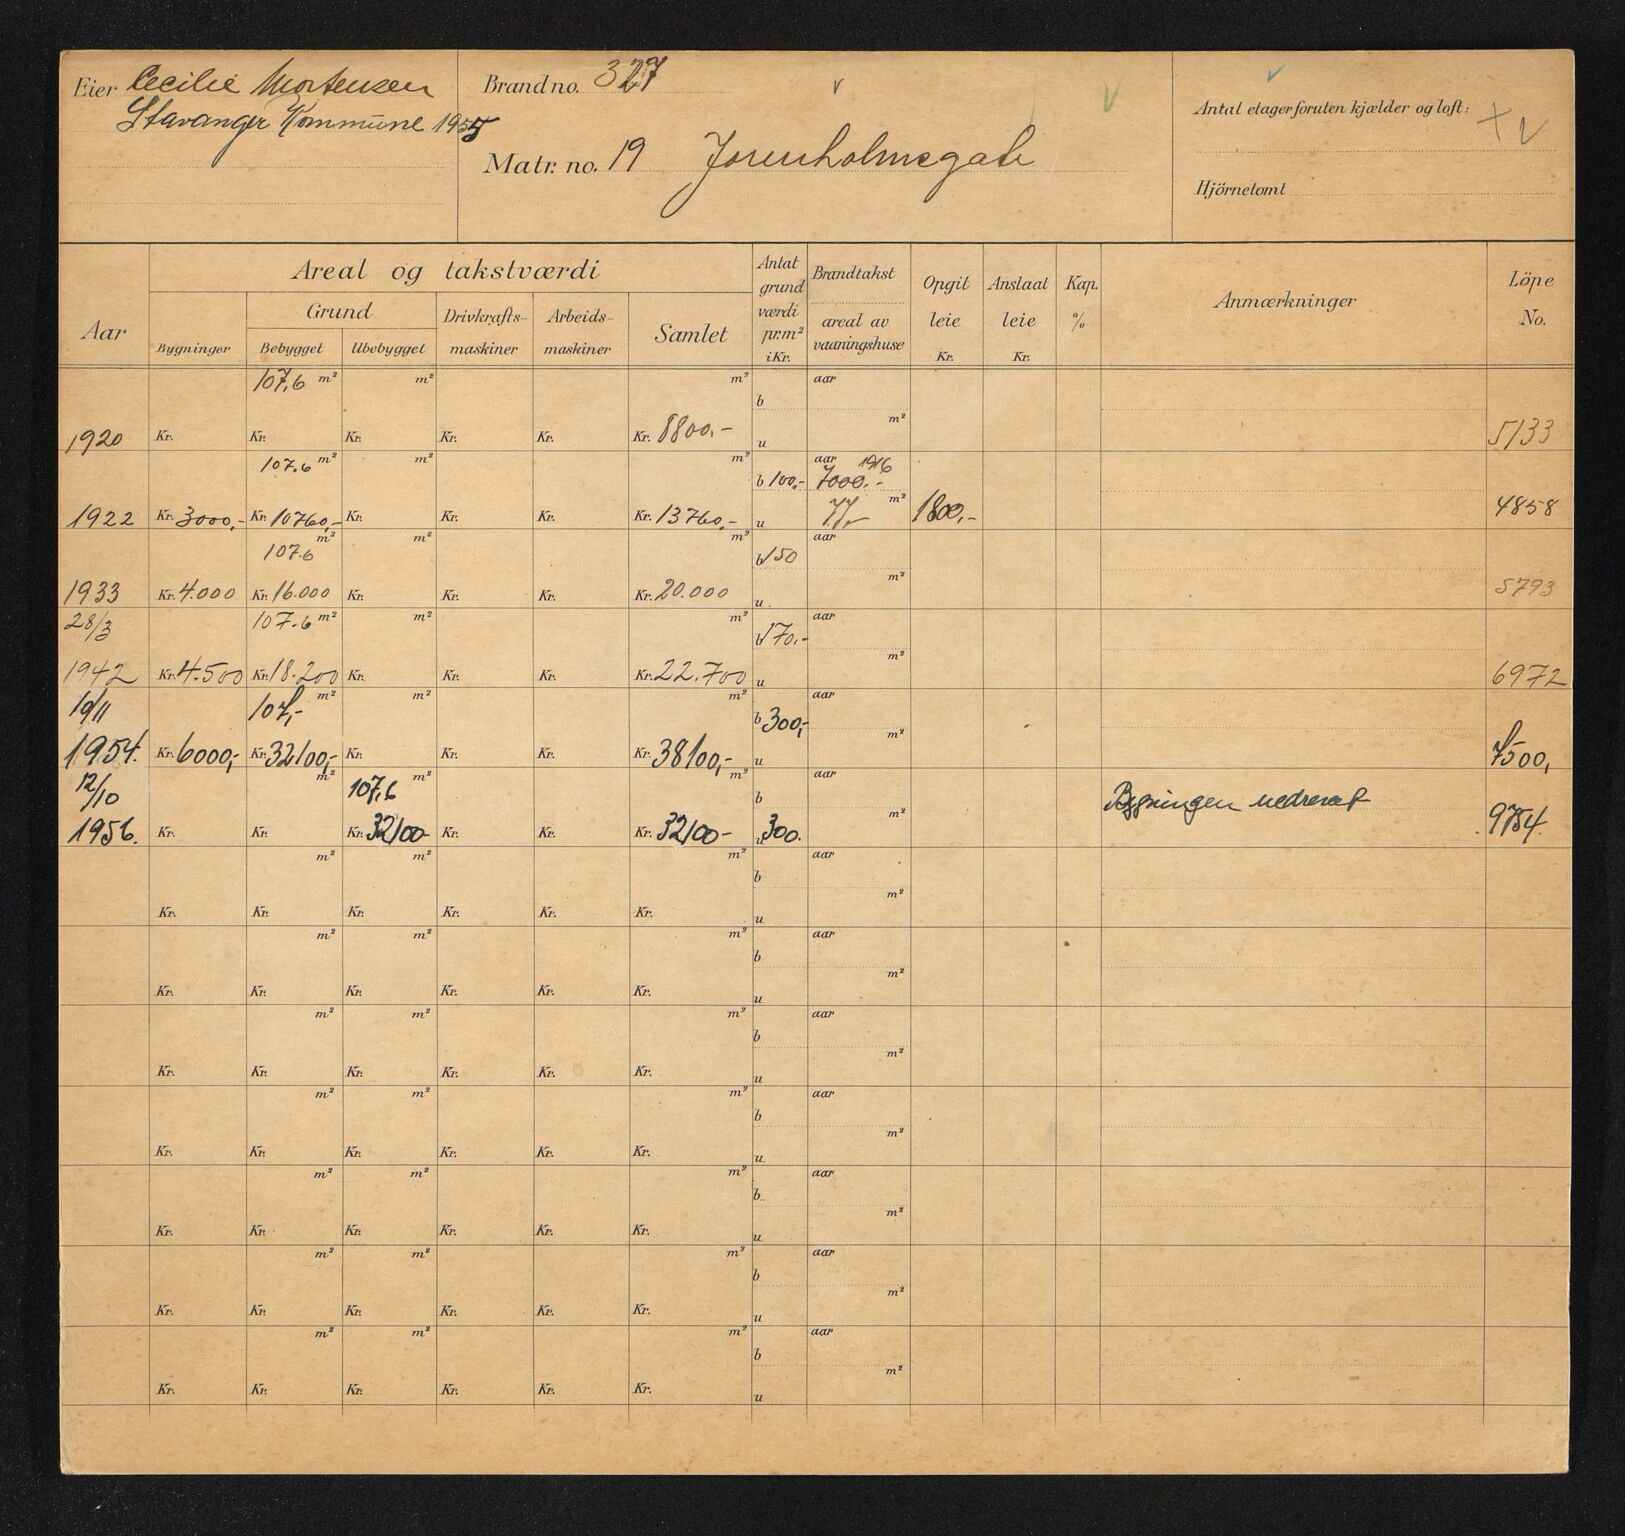 Eier Cecilie Mortensen
Stavanger Kommune 1955
Brand no. 327
Matr. no. 19 Jorenholmegate
Antal etager foruten kjælder og loft: +
Hjörnetomt
Aar
Areal og takstværdi
Grund
Bygninger Bebygget Ubebygget
Drivkrafts-maskiner
Arbeids-maskiner
Samlet
Antat grund værdi pr. m² i Kr.
Brandtakst
areal av vaaningshuse
Opgit leie Kr.
Anslaat leie Kr.
Kap. %
Anmærkninger
Löpe No.
107,6 m² m² m² b aar m²
1920 Kr. Kr. Kr. Kr. Kr. Kr. 8800.- u 5133
107.6 m² m² m² b 100.- aar 1916 7000.- m²
1922 Kr. 3000,- Kr. 10760,- Kr. Kr. Kr. Kr. 13760,- u 77,- 1800.- 4858
107.6 m² m² m² b 150 aar m²
1933 Kr. 4.000 Kr. 16.000 Kr. Kr. Kr. Kr. 20.000 u 5793
28/3 107.6 m² m² m² b 170.- aar m²
1942 Kr. 4.500 Kr. 18.200 Kr. Kr. Kr. Kr. 22.700 u 6972
10/11 107,- m² m² m² b 300,- aar m²
1954. Kr. 6000,- Kr. 32100,- Kr. Kr. Kr. Kr. 38100,- u 7500,
12/10 m² 107,6 m² m² b aar m² Bygningen nedrevet
1956. Kr. Kr. Kr. 32100- Kr. Kr. Kr. 32100- u 300. 9754.
m² m² m² b aar m²
Kr. Kr. Kr. Kr. Kr. Kr. u
m² m² m² b aar m²
Kr. Kr. Kr. Kr. Kr. Kr. u
m² m² m² b aar m²
Kr. Kr. Kr. Kr. Kr. Kr. u
m² m² m² b aar m²
Kr. Kr. Kr. Kr. Kr. Kr. u
m² m² m² b aar m²
Kr. Kr. Kr. Kr. Kr. Kr. u
m² m² m² b aar m²
Kr. Kr. Kr. Kr. Kr. Kr. u
m² m² m² b aar m²
Kr. Kr. Kr. Kr. Kr. Kr. u